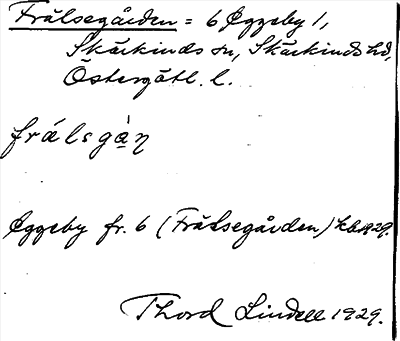 Frälsegården = 6 Eggeby 1,
Skärkinds sn, Skärkinds hd,
Östergötl. l.
frälsgàṇ
Eggeby fr. 6 (Frälsegården) kb 1929.
Thord Lindell 1929.